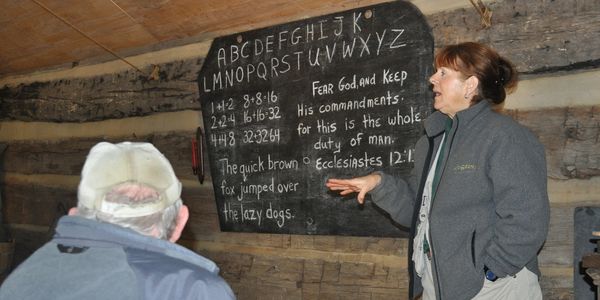 ABCDEFGHIJK
LMNOPQRSTUVWXYZ
1+1=2 8+8=16
2+2=4 16+16=32
4+4=8 32+32=64
The quick brown
fox jumped over
the lazy dogs.
Fear God, and keep
His commandments.
for this is the whole
duty of man.
Ecclesiastes 12:1